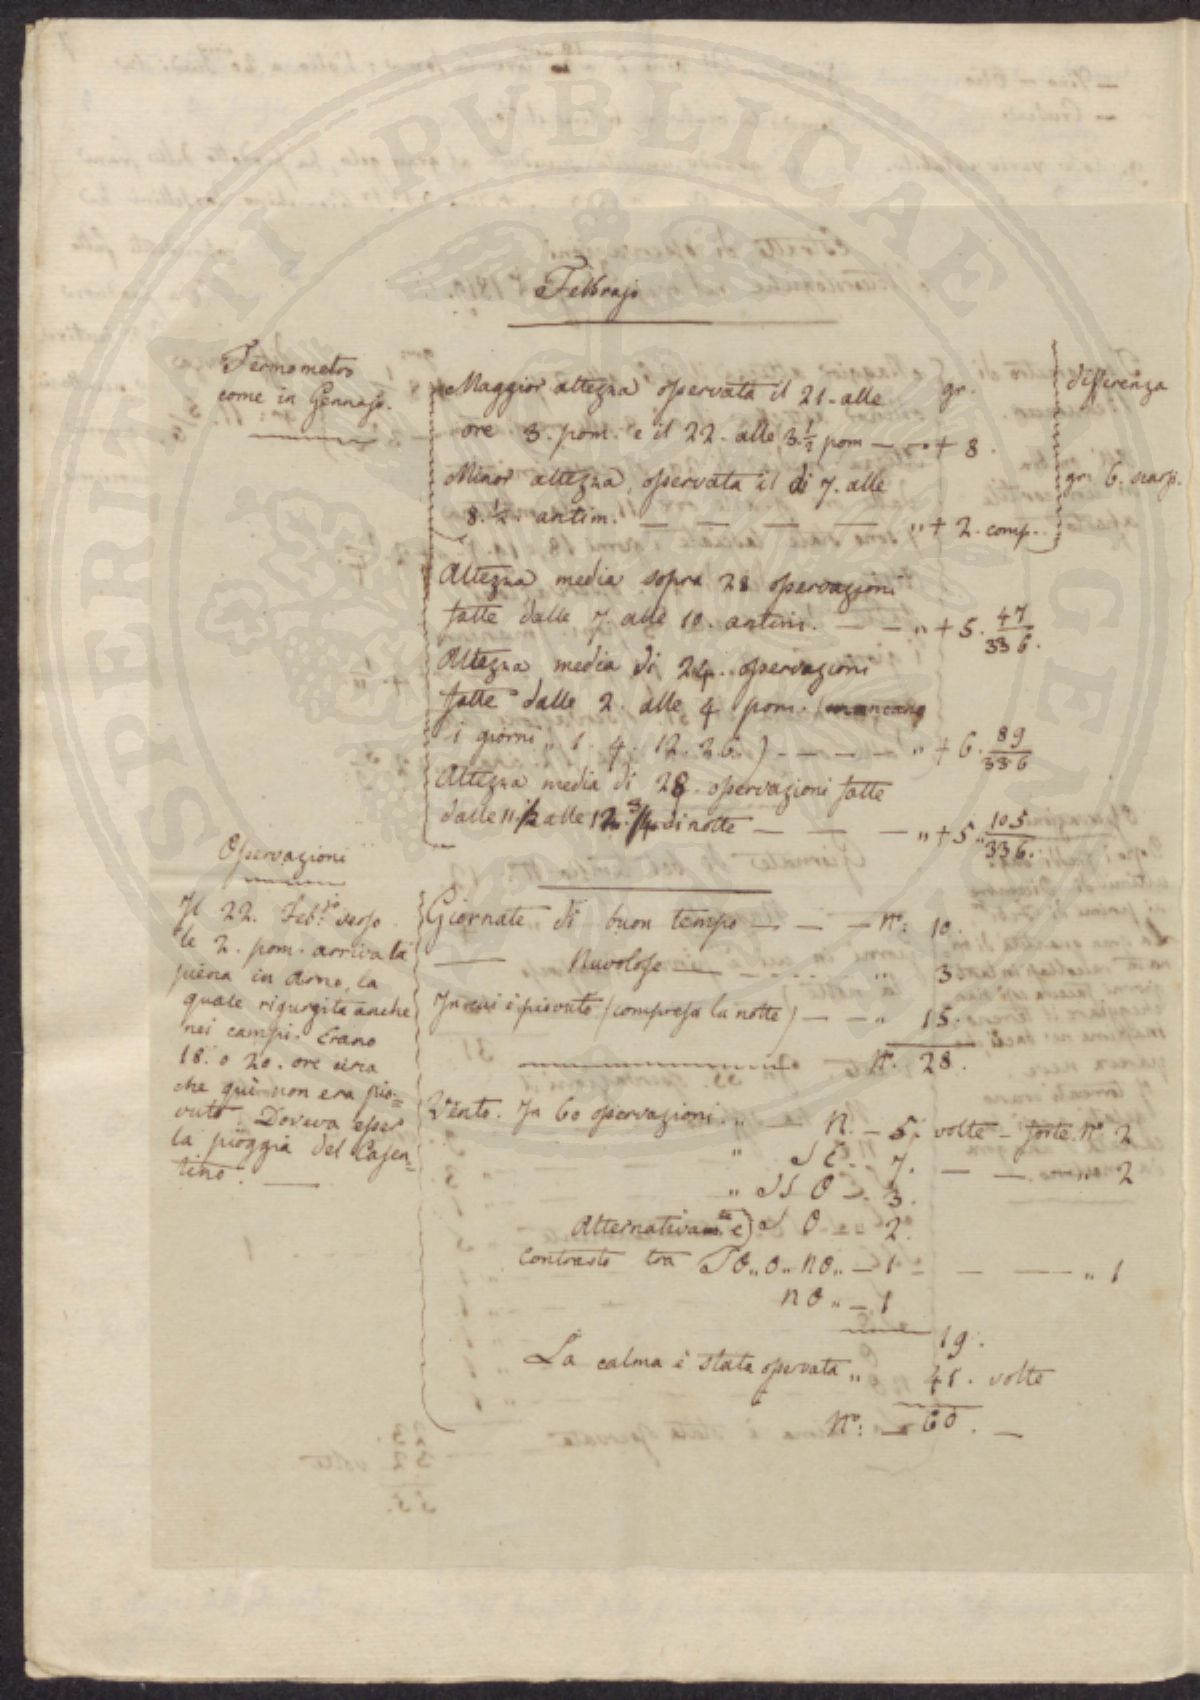 Febbrajo
Termometro
come in Gennajo.
Maggior altezza osservata il 21. alle gr.
ore 3. pom. e il 22. alle 3 1/2 pom — " + 8.
Minor altezza, osservata il dì 7. alle
8. 1/2. antim. — — — — " + 2. comp.
differenza
gr. 6. scarsi.
Altezza media sopra 28 osservazioni
fatte dalle 7. alle 10. antim. — — " + 5. 47/336.
Altezza media di 24. osservazioni
fatte dalle 2. alle 4 pom. (mancano
i giorni " 1. 4. 12. 26.) — — — — " + 6. 89/336
Altezza media di 28. osservazioni fatte
dalle 11. 1/2 alle 12. 3/4 di notte — — — " + 5. 105/336.
Osservazioni
Il 22. Feb.ro verso
le 2. pom. arriva la
piena in Arno, la
quale rigurgita anche
nei campi. Erano
18. o 20. ore circa
che quì non era pio=
vuto. Doveva esser
la pioggia del Casen=
tino. —
Giornate di buon tempo — — — N.º: 10.
— Nuvolose — — — " 3.
In cui è piovuto (compresa la notte) — — " 15.
N.º 28.
Vento. In 60 osservazioni. " — N. — 5. volte — forte N.º 2
" S E. — 7. — — " 2
" S S O — 3.
Alternativam.te e) S O — — 2.
Contrasto tra S O " O " N O " — 1 — — — " 1
N O " — 1
19.
La calma è stata osservata " 41. volte
N.º: — 60. —